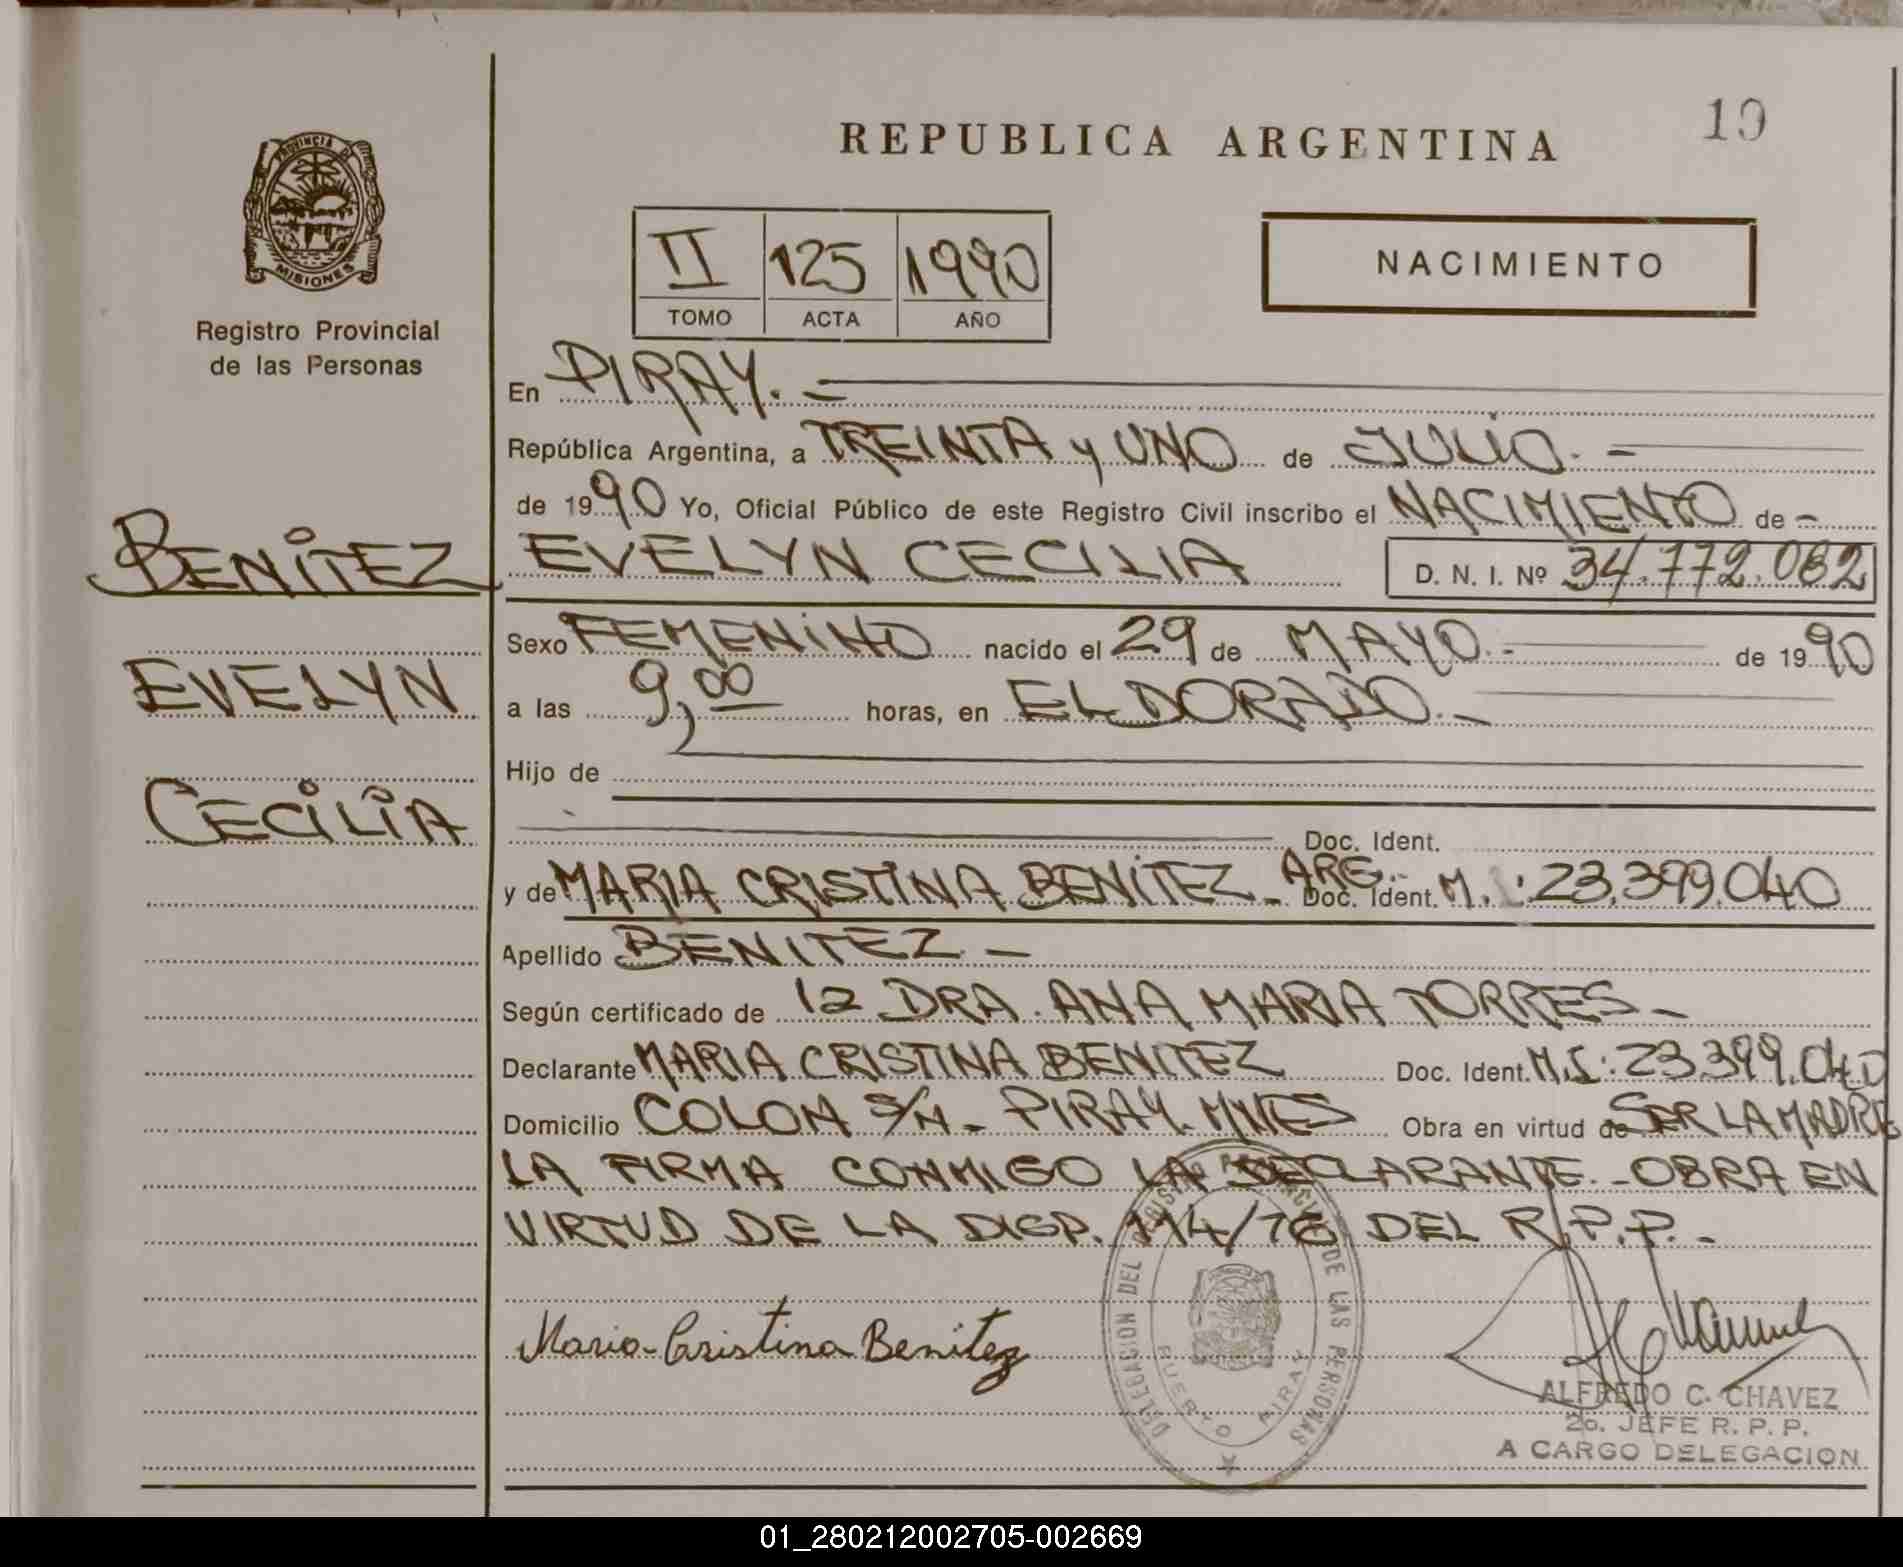 PROVINCIA DE
MISIONES
Registro Provincial
de las Personas
BENITEZ
EVELYN
CECILIA
19
REPUBLICA ARGENTINA
II 125 1990
TOMO ACTA AÑO
NACIMIENTO
En PIRAY.-
República Argentina, a TREINTA y UNO de JULIO.-
de 1990 Yo, Oficial Público de este Registro Civil inscribo el NACIMIENTO de -
EVELYN CECILIA D. N. I. Nº 34.772.062
Sexo FEMENINO nacido el 29 de MAYO.- de 1990
a las 9,00 horas, en ELDORADO.-
Hijo de
Doc. Ident.
y de MARIA CRISTINA BENITEZ - ARG.- Doc. Ident. M.I.: 23.399.040
Apellido BENITEZ -
Según certificado de la DRA. ANA MARIA TORRES -
Declarante MARIA CRISTINA BENITEZ Doc. Ident. M.I.: 23.399.040
Domicilio COLON S/N - PIRAY. MNES Obra en virtud de SER LA MADRE
LA FIRMA CONMIGO LA DECLARANTE.- OBRA EN
VIRTUD DE LA DISP. 114/76 DEL R.P.P.-
Maria Cristina Benitez
DELEGACION DEL REGISTRO PROVINCIAL DE LAS PERSONAS
PUERTO PIRAY
ALFREDO C. CHAVEZ
2o. JEFE R. P. P.
A CARGO DELEGACION
01_280212002705-002669